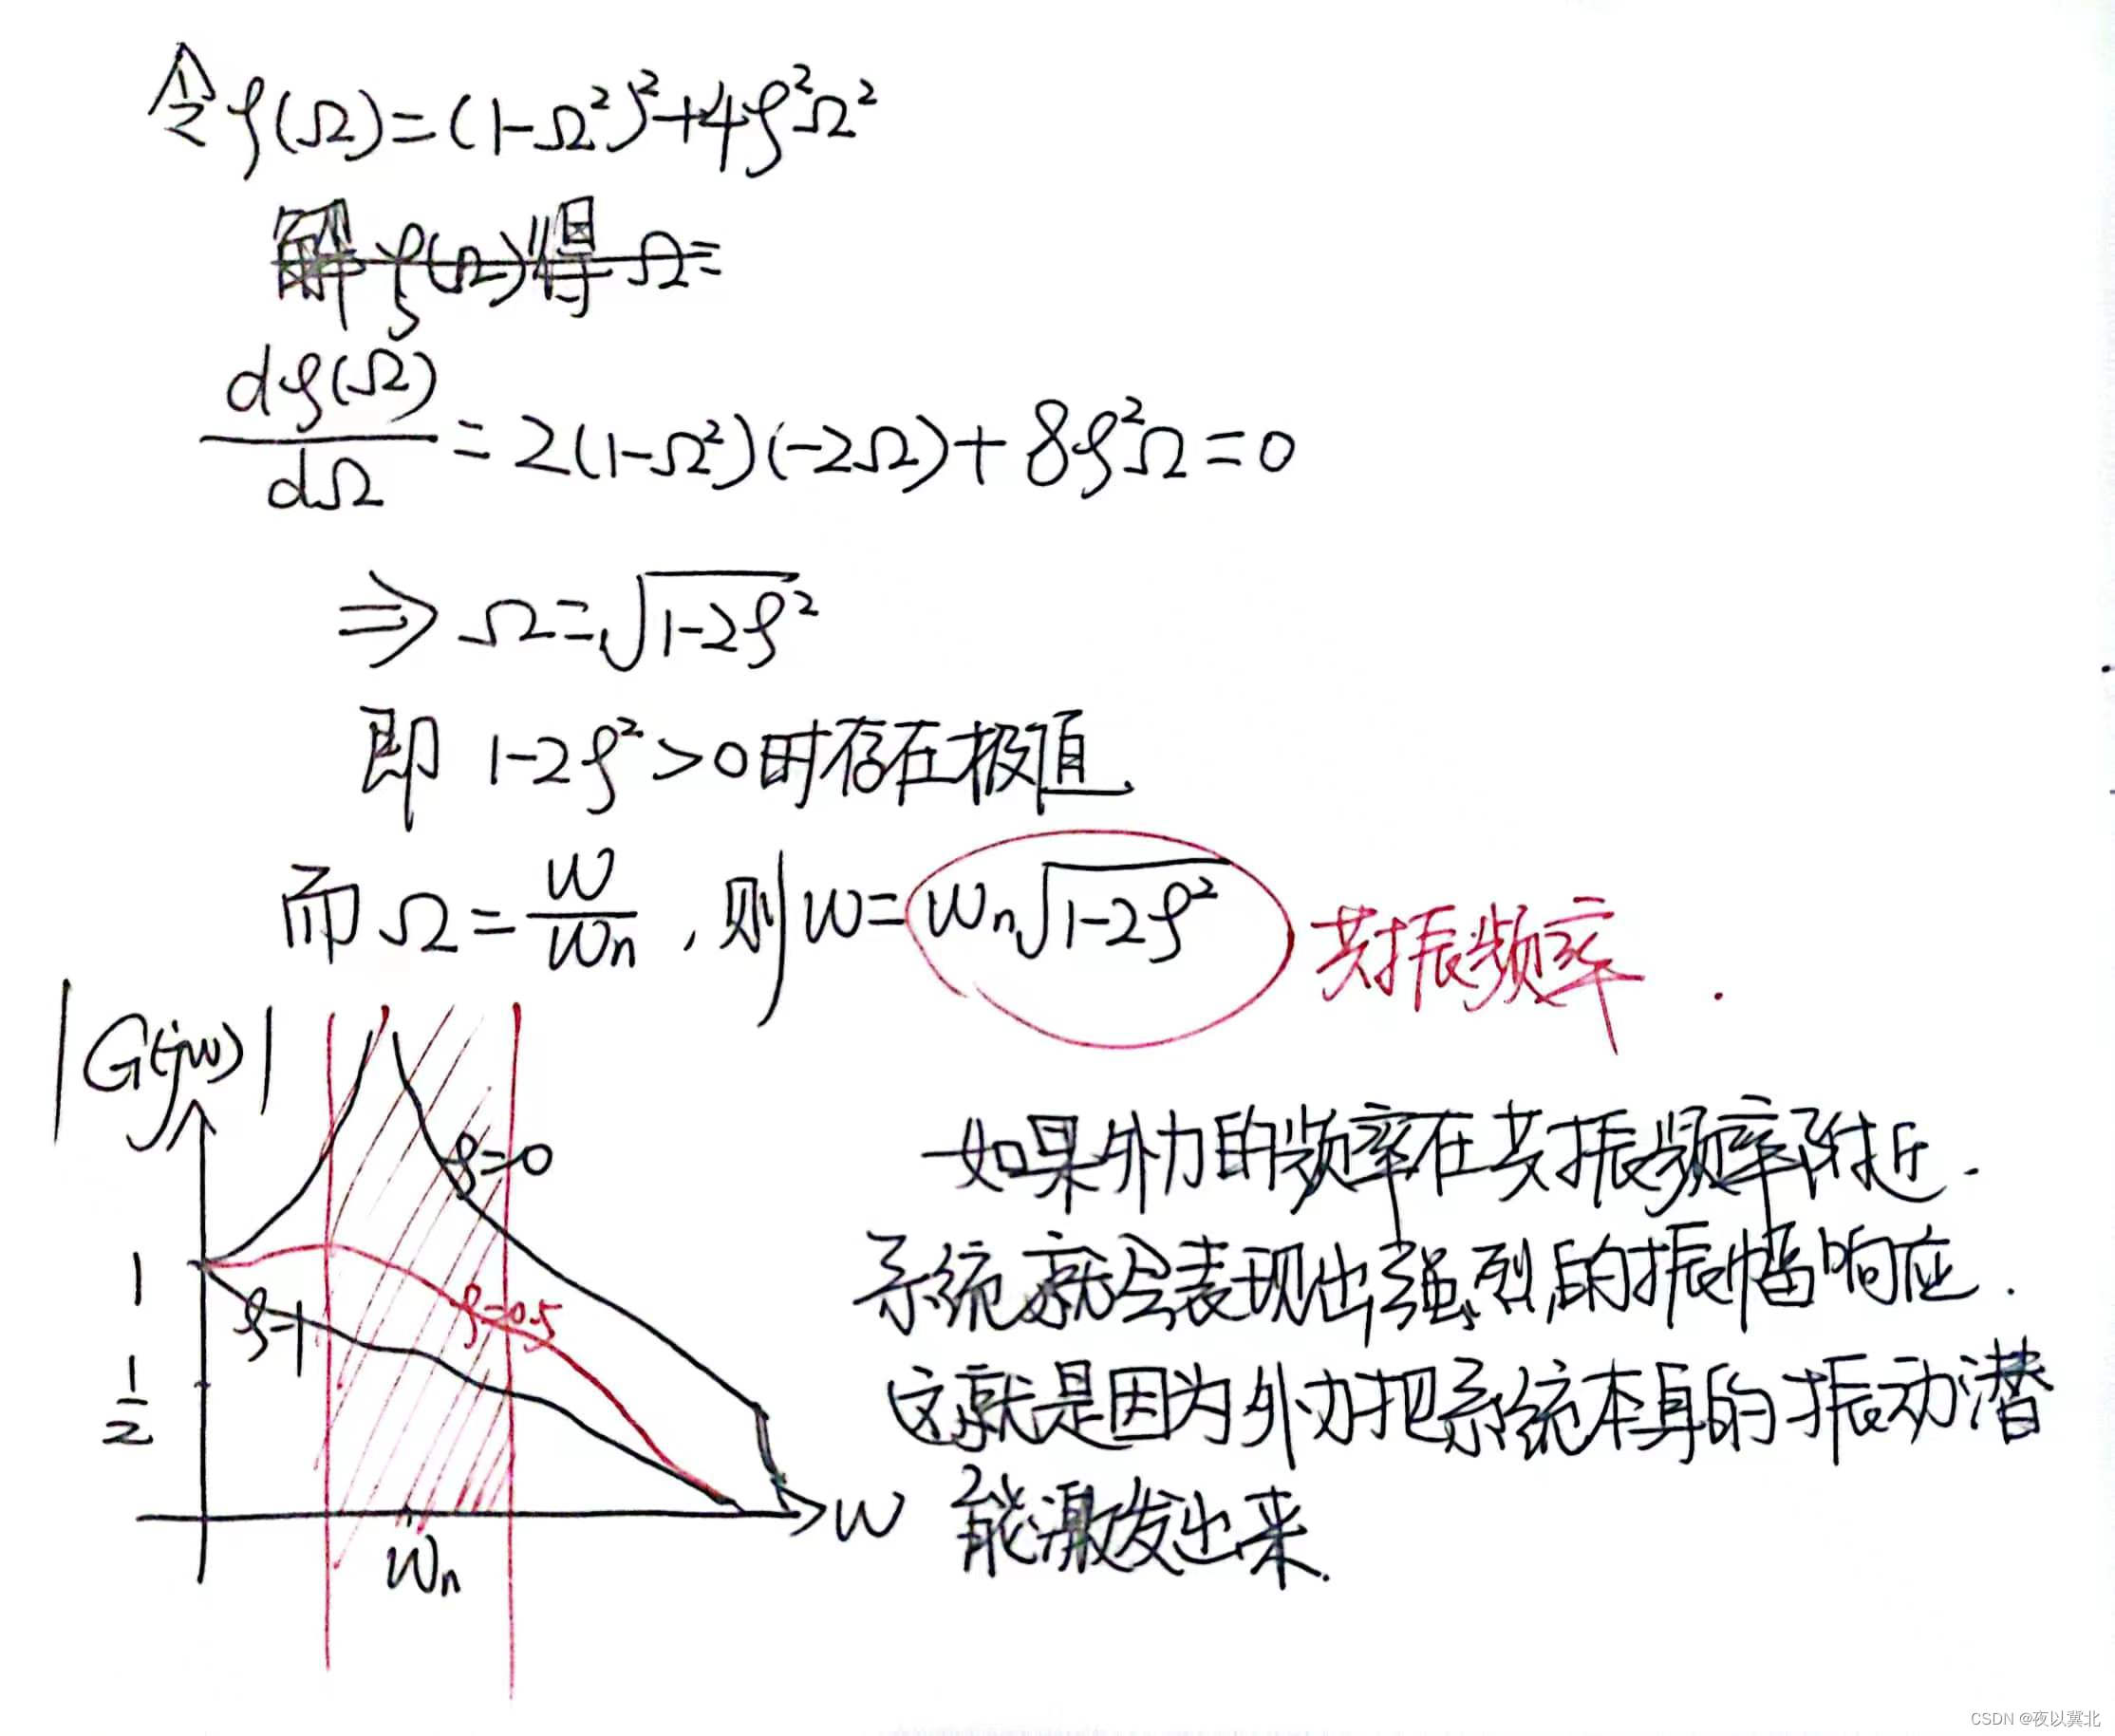 令ζ(Ω)=(1-Ω²)²+4ζ²Ω²
解ζ(Ω)得Ω=
dζ(Ω)/dΩ=2(1-Ω²)(-2Ω)+8ζ²Ω=0
⇒ Ω=√(1-2ζ²)
即 1-2ζ²>0时存在极值.
而Ω=w/wn,则w=wn√(1-2ζ²) 共振频率.
|G(jw)|
ζ=0
1
ζ=1
ζ=0.5
1/2
wn
w
如果外力的频率在共振频率附近.
系统就会表现出强烈的振幅响应.
这就是因为外力把系统本身的振动潜
能激发出来.
CSDN @夜以冀北